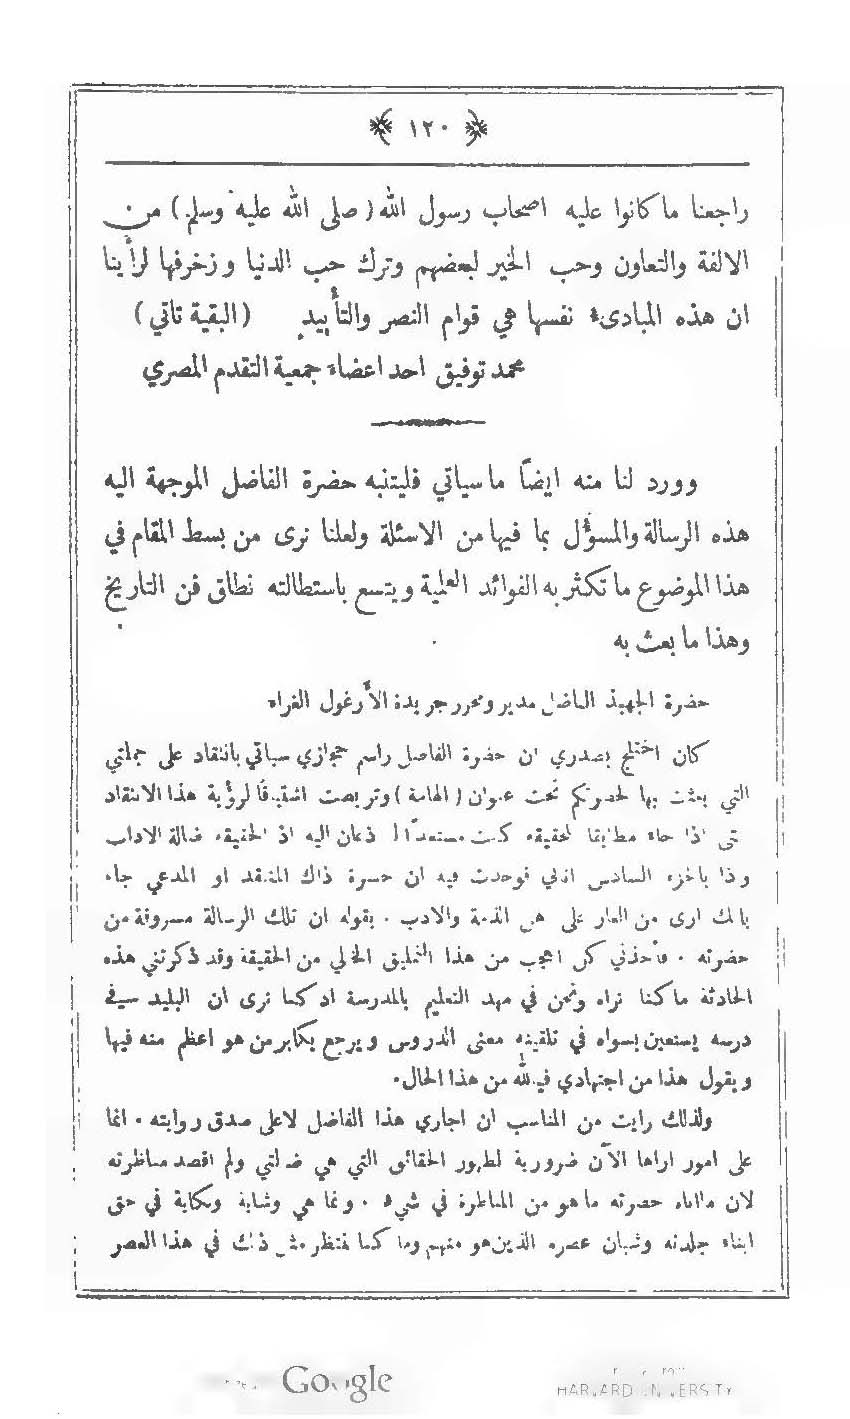 ١٢٠
راجعنا ما كانوا عليه اصحاب رسول الله ( صلى الله عليه وسلم ) من
الالفة والتعاون وحب الخير لبعضهم وترك حب الدنيا وزخرفها لرأينا
ان هذه المبادىء نفسها هي قوام النصر والتأييد ( البقية تاتي )
محمد توفيق احد اعضاء جمعية التقدم المصري
وورد لنا منه ايضاً ما سياتي فليتنبه حضرة الفاضل الموجهة اليه
هذه الرسالة والمسؤل بما فيها من الاسئلة ولعلنا نرى من بسط المقام في
هذا الموضوع ما تكثر به الفوائد العلمية ويتسع باستطالته نطاق فن التاريخ
وهذا ما بعث به
حضرة الجهبذ الفاضل مدير ومحرر جريدة الأرغول الغراء
كان اختلج بصدري ان حضرة الفاضل راسم حجازي سياتي بانتقاد على جملتي
التي بعثت بها لحضرتكم تحت عنوان ( الهامة ) وتربصت اشتياقاً لرؤية هذا الانتقاد
حتى اذا جاء مطابقا لحقيقة كنت مستعداً اذعان اليه اذ الحقيقة ضالة الاداب
واذا بالجزء السادس اتاني فوجدت فيه ان حضرة ذاك المنتقد او المدعي جاء
ارى من العار على الذمة والادب . بقوله ان تلك الرسالة مسروقة من
حضرته . فأخذني كل العجب من هذا التمليق الخالي من الحقيقة وقد ذكرتني هذه
الحادثة ما كنا نراه ونحن في مهد التعليم بالمدرسة اذ كما نرى ان البليد سيفي
درسه يستعين بسواه في تلقينه معنى الدروس ويرجع يكابر من هو اعظم منه فيها
ويقول هذا من اجتهادي فيالله من هذا الحال .
ولذلك رايت من المناسب ان اجاري هذا الفاضل لا على صدق روايته . انما
على امور اراها الآن ضرورية لظهور الحقائق التي هي ضالتي ولم اقصد مناظرته
لان ما اتاه حضرته ما هو من المناظرة في شيء . وانما هي وشاية ونكاية في حق
ابناء جلدته وشبان عصره الذين هو منهم وما كنا ننتظر مثل ذلك في هذا العصر
Google
HARVARD UNIVERSITY